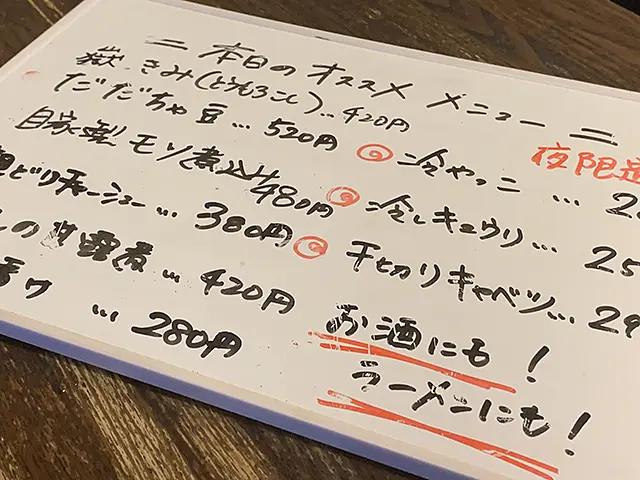 二 本日のオススメ メニュー 二
嶽きみ(とうもろこし)…420円
だだちゃ豆…520円
自家製モツ煮込み480円
どりチャーシュー…380円
の甘露煮…420円
…280円
夜限定
冷やっこ…2
冷しキュウリ…25
千切りキャベツ…29
お酒にも!
ラーメンにも!